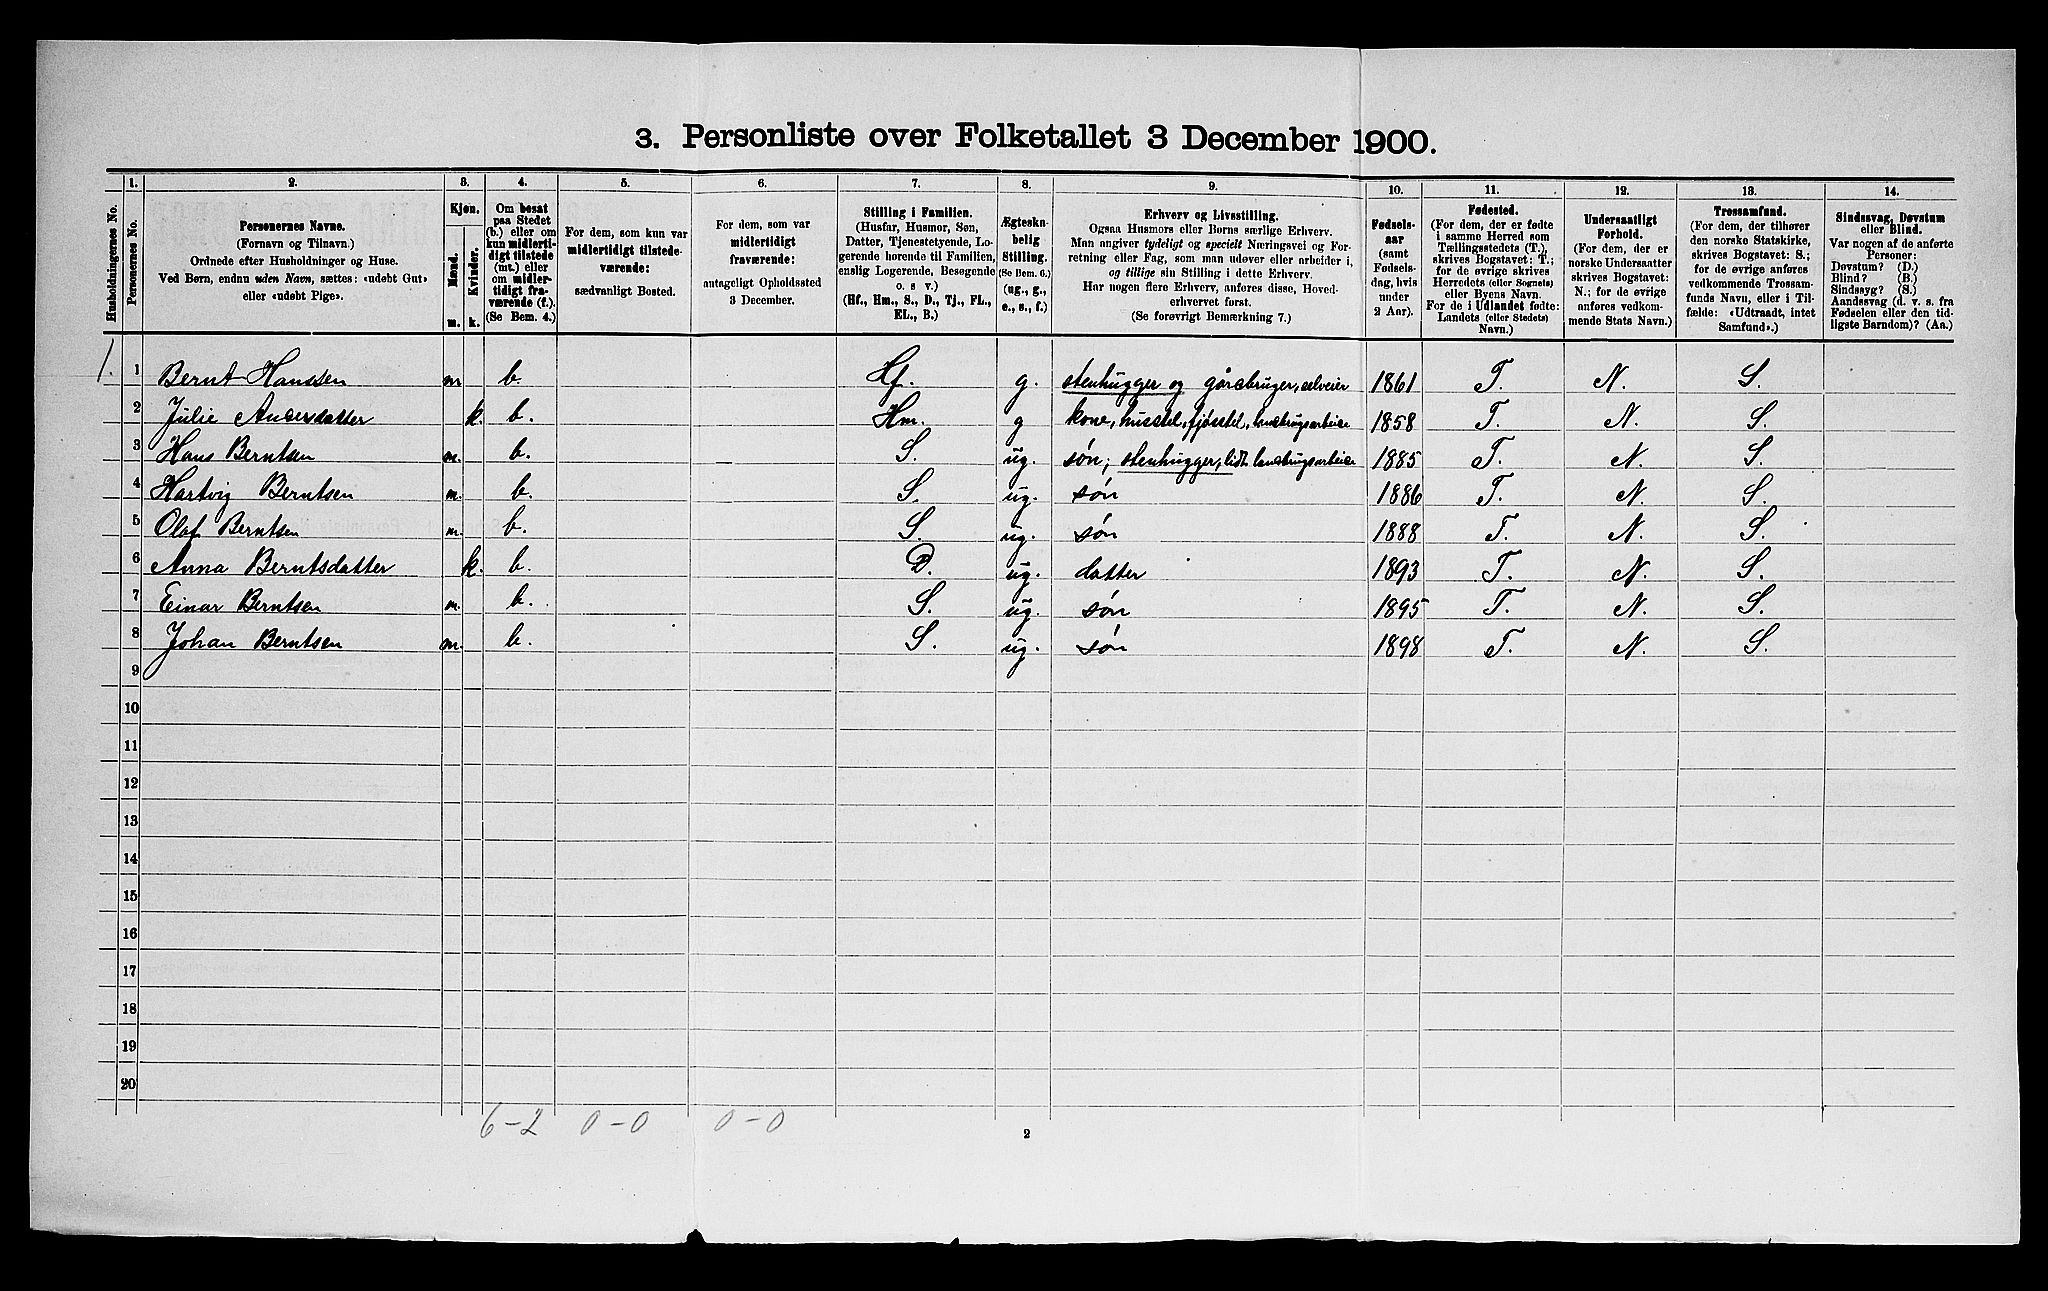 3. Personliste over Folketallet 3 December 1900.
Husholdningernes No.
1. Personernes No.
2. Personernes Navne.
(Fornavn og Tilnavn.)
Ordnede efter Husholdninger og Huse.
Ved Børn, endnu uden Navn, sættes: «udøbt Gut»
eller «udøbt Pige».
3. Kjøn.
Mænd. m.
Kvinder. k.
4. Om bosat
paa Stedet
(b.) eller om
kun midlerti-
digt tilstede
(mt.) eller
om midler-
tidigt fra-
værende (f.).
(Se Bem. 4.)
5. For dem, som kun var
midlertidigt tilstede-
værende:
sædvanligt Bosted.
6. For dem, som var
midlertidigt
fraværende:
antageligt Opholdssted
3 December.
7. Stilling i Familien.
(Husfar, Husmor, Søn,
Datter, Tjenestetyende, Lo-
gerende hørende til Familien,
enslig Logerende, Besøgende
o. s v.)
(Hf., Hm., S., D., Tj., FL.,
EL., B.)
8. Ægteska-
belig
Stilling.
(Se Bem. 6.)
(ug., g.,
e., s., f.)
9. Erhverv og Livsstilling.
Ogsaa Husmors eller Børns særlige Erhverv.
Man angiver tydeligt og specielt Næringsvei og For-
retning eller Fag, som man udøver eller arbeider i,
og tillige sin Stilling i dette Erhverv.
Har nogen flere Erhverv, anføres disse, Hoved-
erhvervet først.
(Se forøvrigt Bemærkning 7.)
10. Fødsels-
aar
(samt
Fødsels-
dag, hvis
under
2 Aar).
11. Fødested.
(For dem, der er fødte
i samme Herred som
Tællingsstedet (T.),
skrives Bogstavet: T.;
for de øvrige skrives
Herredets (eller Sognets)
eller Byens Navn.
For de i Udlandet fødte:
Landets (eller Stedets)
Navn.)
12. Undersaatligt
Forhold.
(For dem, der er
norske Undersaatter
skrives Bogstavet:
N.; for de øvrige
anføres vedkom-
mende Stats Navn.)
13. Trossamfund.
(For dem, der tilhører
den norske Statskirke,
skrives Bogstavet: S.;
for de øvrige anføres
vedkommende Trossam-
funds Navn, eller i Til-
fælde: «Udtraadt, intet
Samfund».)
14. Sindssvag, Døvstum
eller Blind.
Var nogen af de anførte
Personer:
Døvstum? (D.)
Blind? (B.)
Sindssyg? (S.)
Aandssvag (d. v. s. fra
Fødselen eller den tid-
ligste Barndom)? (Aa.)
1. 1 Bernt Hanssen m. b. Hf. g. stenhugger og gårdbruger, selveier 1861 T. N. S.
2 Julie Andersdatter k. b. Hm. g kone, husstel, fjøsstel, landbrugsarbeide 1858 T. N. S.
3 Hans Berntsen m. b. S. ug. søn; stenhugger, lidt landbrugsarbeide 1885 T. N. S.
4 Hartvig Berntsen m. b. S. ug. søn 1886 T. N. S.
5 Olaf Berntsen m. b. S. ug. søn 1888 T. N. S.
6 Anna Berntsdatter k. b. D. ug. datter 1893 T. N. S.
7 Einar Berntsen m. b. S. ug. søn 1895 T. N. S.
8 Johan Berntsen m. b. S. ug. søn 1898 T. N. S.
9
10
11
12
13
14
15
16
17
18
19
20
6-2 0-0 0-0
2